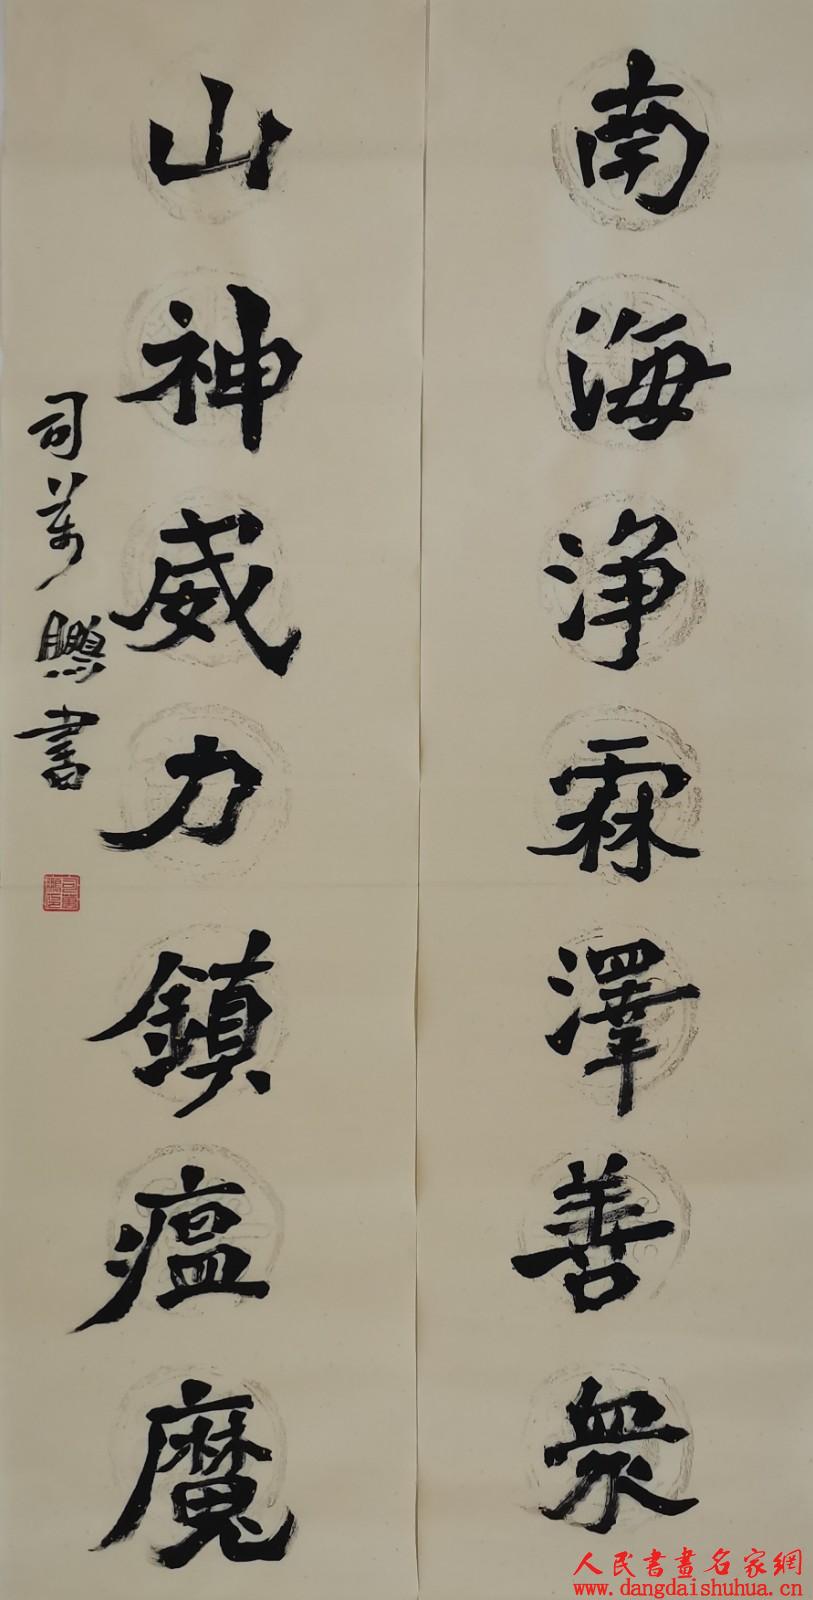 南海浄霖澤善衆
山神威力鎮瘟魔
司萬鵬書
人民書畫名家網
www.dangdaishuhua.cn